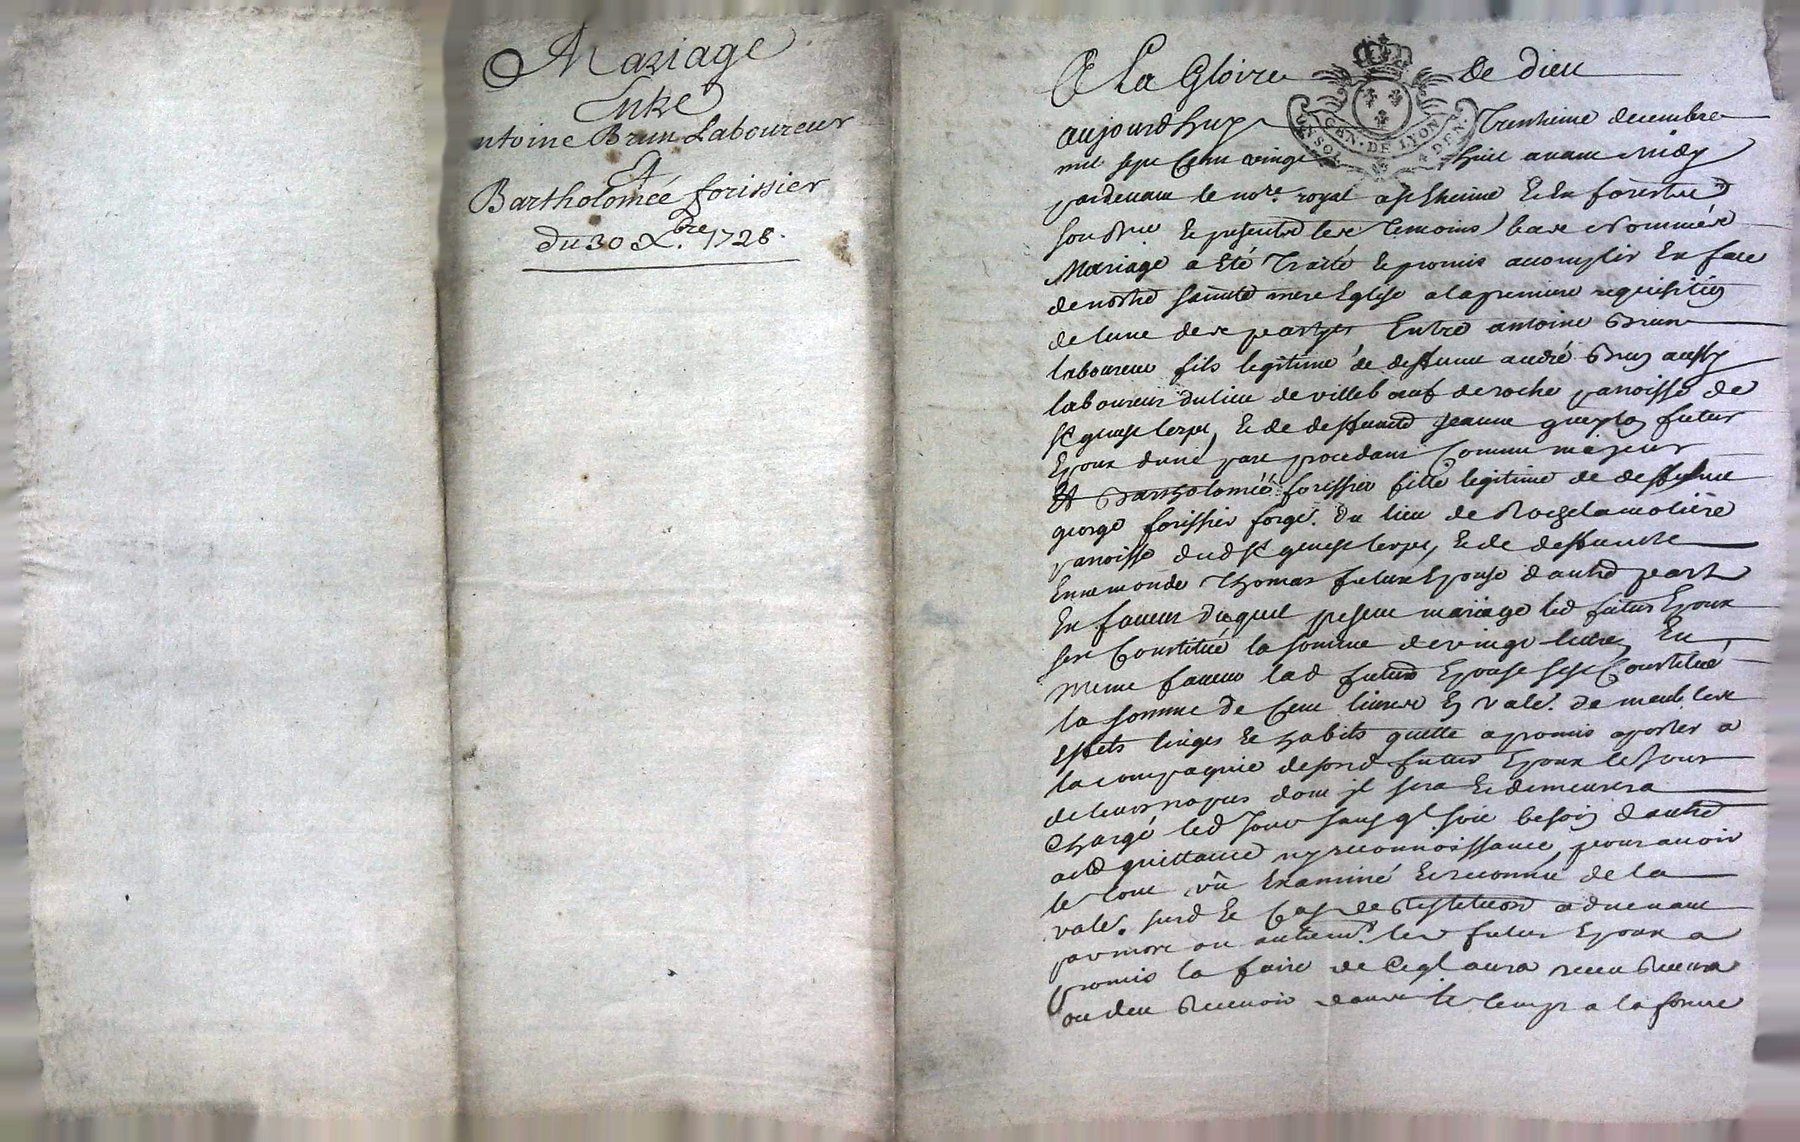 Mariage
Entre
ntoine Brun Laboureur
Et
Bartholomée forissier
du 30 Xbre. 1728.
A La Gloire de dieu
GEN. DE LYON
aujourdhuy Trentieme decembre
mil sept cent vingt huit avant midy
pardevant le nore. royal a St Etienne En forestz
soubsne et presents les temoins bas nommés
Mariage a Eté Traité et promis accomplir En face
de nostre sainte mere Eglise a la premiere requisition
de lune des partyes Entre antoine Brun
laboureur fils legitime de deffunt andré Brun aussy
laboureur du lieu de villebœuf de roche parroisse de
St genest lerpt, et de deffunte Jeanne futur
Epoux dune part procedant comme majeur
Et Bartholomée forissier fille legitime de deffunt
george forissier forgr. du lieu de Rochelamoliere
parroisse dud St genest lerpt, et de deffuncte
Ennemonde Thomas future Epouse dautre part
En faveur duquel present mariage led futur Epoux
sest Constitué la somme de vingt livres En
meme faveur lad future Epouse sest Constitué
la somme de Cent livres En vale. de meubles
effets linges et habits quelle a promis aporter a
la compagnie de sond futur Epoux le Jour
de leurs nopces dont il sera Et demeurera
Chargé led Jour sans ql soit besoin dautre
acte quittance ny reconnoissance, pour avoir
le tout vû Examiné Et reconnu de la
vale. susd Et Cas de Restitution advenant
par mort ou autremt. led futur Epoux a
promis la faire de Ce ql aura receu
ou deu Recevoir dans le temps a la forme